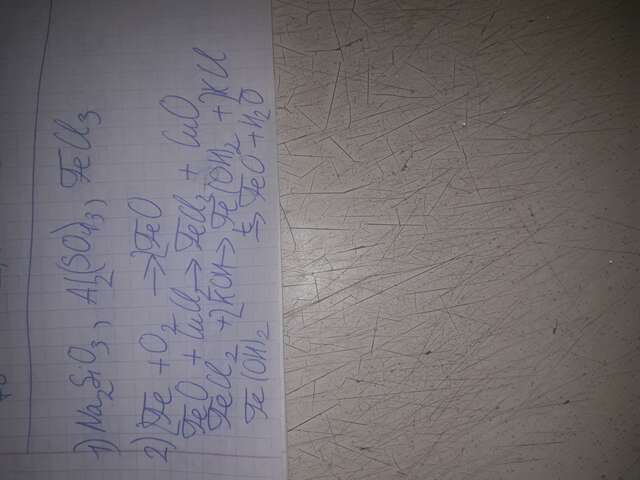 1) Na₂SiO₃, Al₂(SO₄)₃, FeCl₃
2) 2Fe + O₂ → 2FeO
FeO + CuCl₂ → FeCl₂ + CuO
FeCl₂ + 2KOH → Fe(OH)₂ + 2KCl
Fe(OH)₂ t→ FeO + H₂O